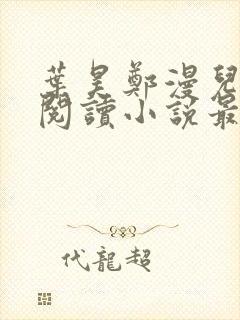 葉昊鄭漫兒
閱讀小說最
代龍超